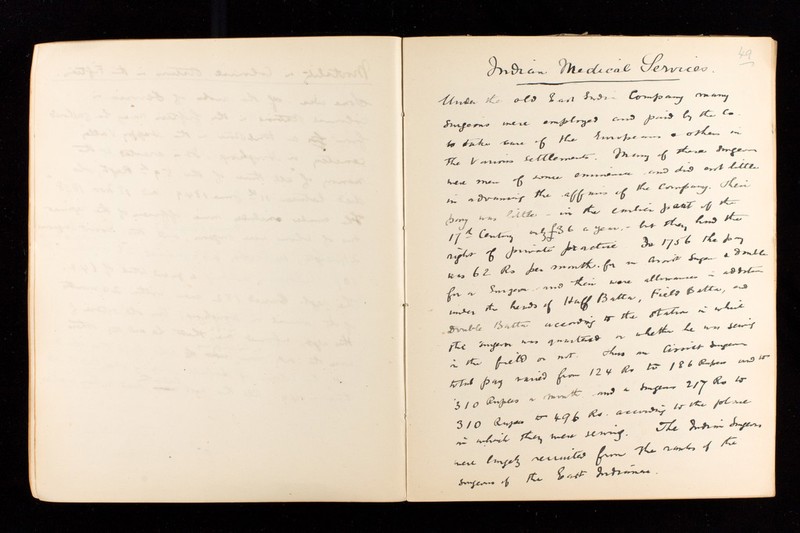 49
Indian Medical Services.
Under the old East India Company many
Surgeons were employed and paid by the Co.
to take care of the Europeans & others in
the various settlements. Many of these Surgeons
were men of some eminence and did not little
in advancing the affairs of the Company. Their
pay was little - in the earlier part of the
17th Century only £36 a year - but they had the
right of private practice In 1756 the pay
was 62 Rs per month for an Assist Surgn & double
for a Surgeon and there were allowances in addition
under the heads of Half Batta, Field Batta, and
Double Batta according to the station in which
the surgeon was quartered or whether he was serving
in the field or not. Thus an Assist Surgeons
total pay varied from 124 Rs to 186 Rupees and to
310 Rupees a month and a Surgeons 217 Rs to
310 Rupees to 496 Rs. according to the place
in which they were serving. The Indian Surgeons
were largely recruited from the ranks of the
Surgeons of the East Indiamen.